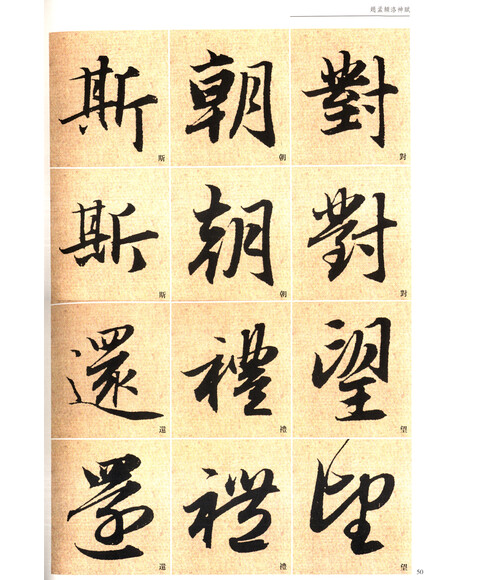 趙孟頫洛神賦
對
對
對
對
望
望
望
望
朝
朝
朝
朝
禮
禮
禮
禮
斯
斯
斯
斯
還
還
還
還
50